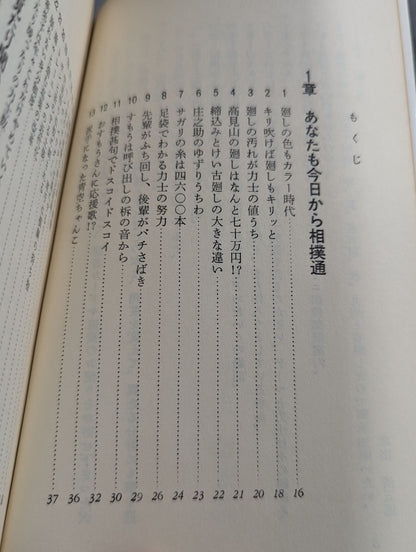 もくじ
1章 あなたも今日から相撲通
1 廻しの色もカラー時代 16
2 キリ吹けば廻しもキリッと 18
3 廻しの汚れが力士の値うち 20
4 高見山の廻しはなんと七十万円!? 21
5 締込みとけい古廻しの大きな違い 22
6 庄之助のゆずりうちわ 23
7 サガリの糸は四六〇〇本 24
8 足袋でわかる力士の努力 26
9 先輩がぶち回し、後輩がバチさばき 29
10 すもうは呼び出しの柝の音から 30
11 相撲甚句でドスコイドスコイ 32
12 おすもうさんに応援歌!? 36
13 った青空ちゃんこ 37